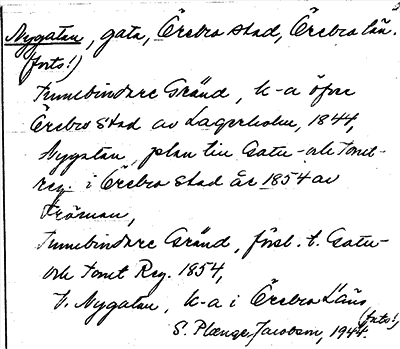 Nygatan, gata, Örebro stad, Örebro län.
(forts!)
Tunnebindare Gränd, k-a öfver
Örebro Stad av Lagerholm, 1844,
Nygatan, plan till Gatu- och Tomt-
reg. i Örebro Stad år 1854 av
Fröman,
Tunnebindare Gränd, försl. t. Gatu-
och Tomt Reg. 1854,
V. Nygatan, k-a i Örebro Läns
(forts!)
S. Plænge Jacobson, 1944.